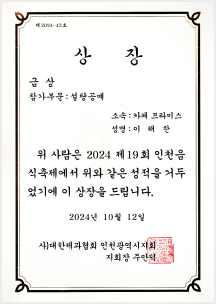 제2024-45호
상 장
금 상
참가부문 : 설탕공예
소속 : 카페 프라미스
성명 : 이 해 란
위 사람은 2024 제19회 인천음
식축제에서 위와 같은 성적을 거두
었기에 이 상장을 드립니다.
2024년 10월 12일
사)대한제과협회 인천광역시지회
지회장 주만덕